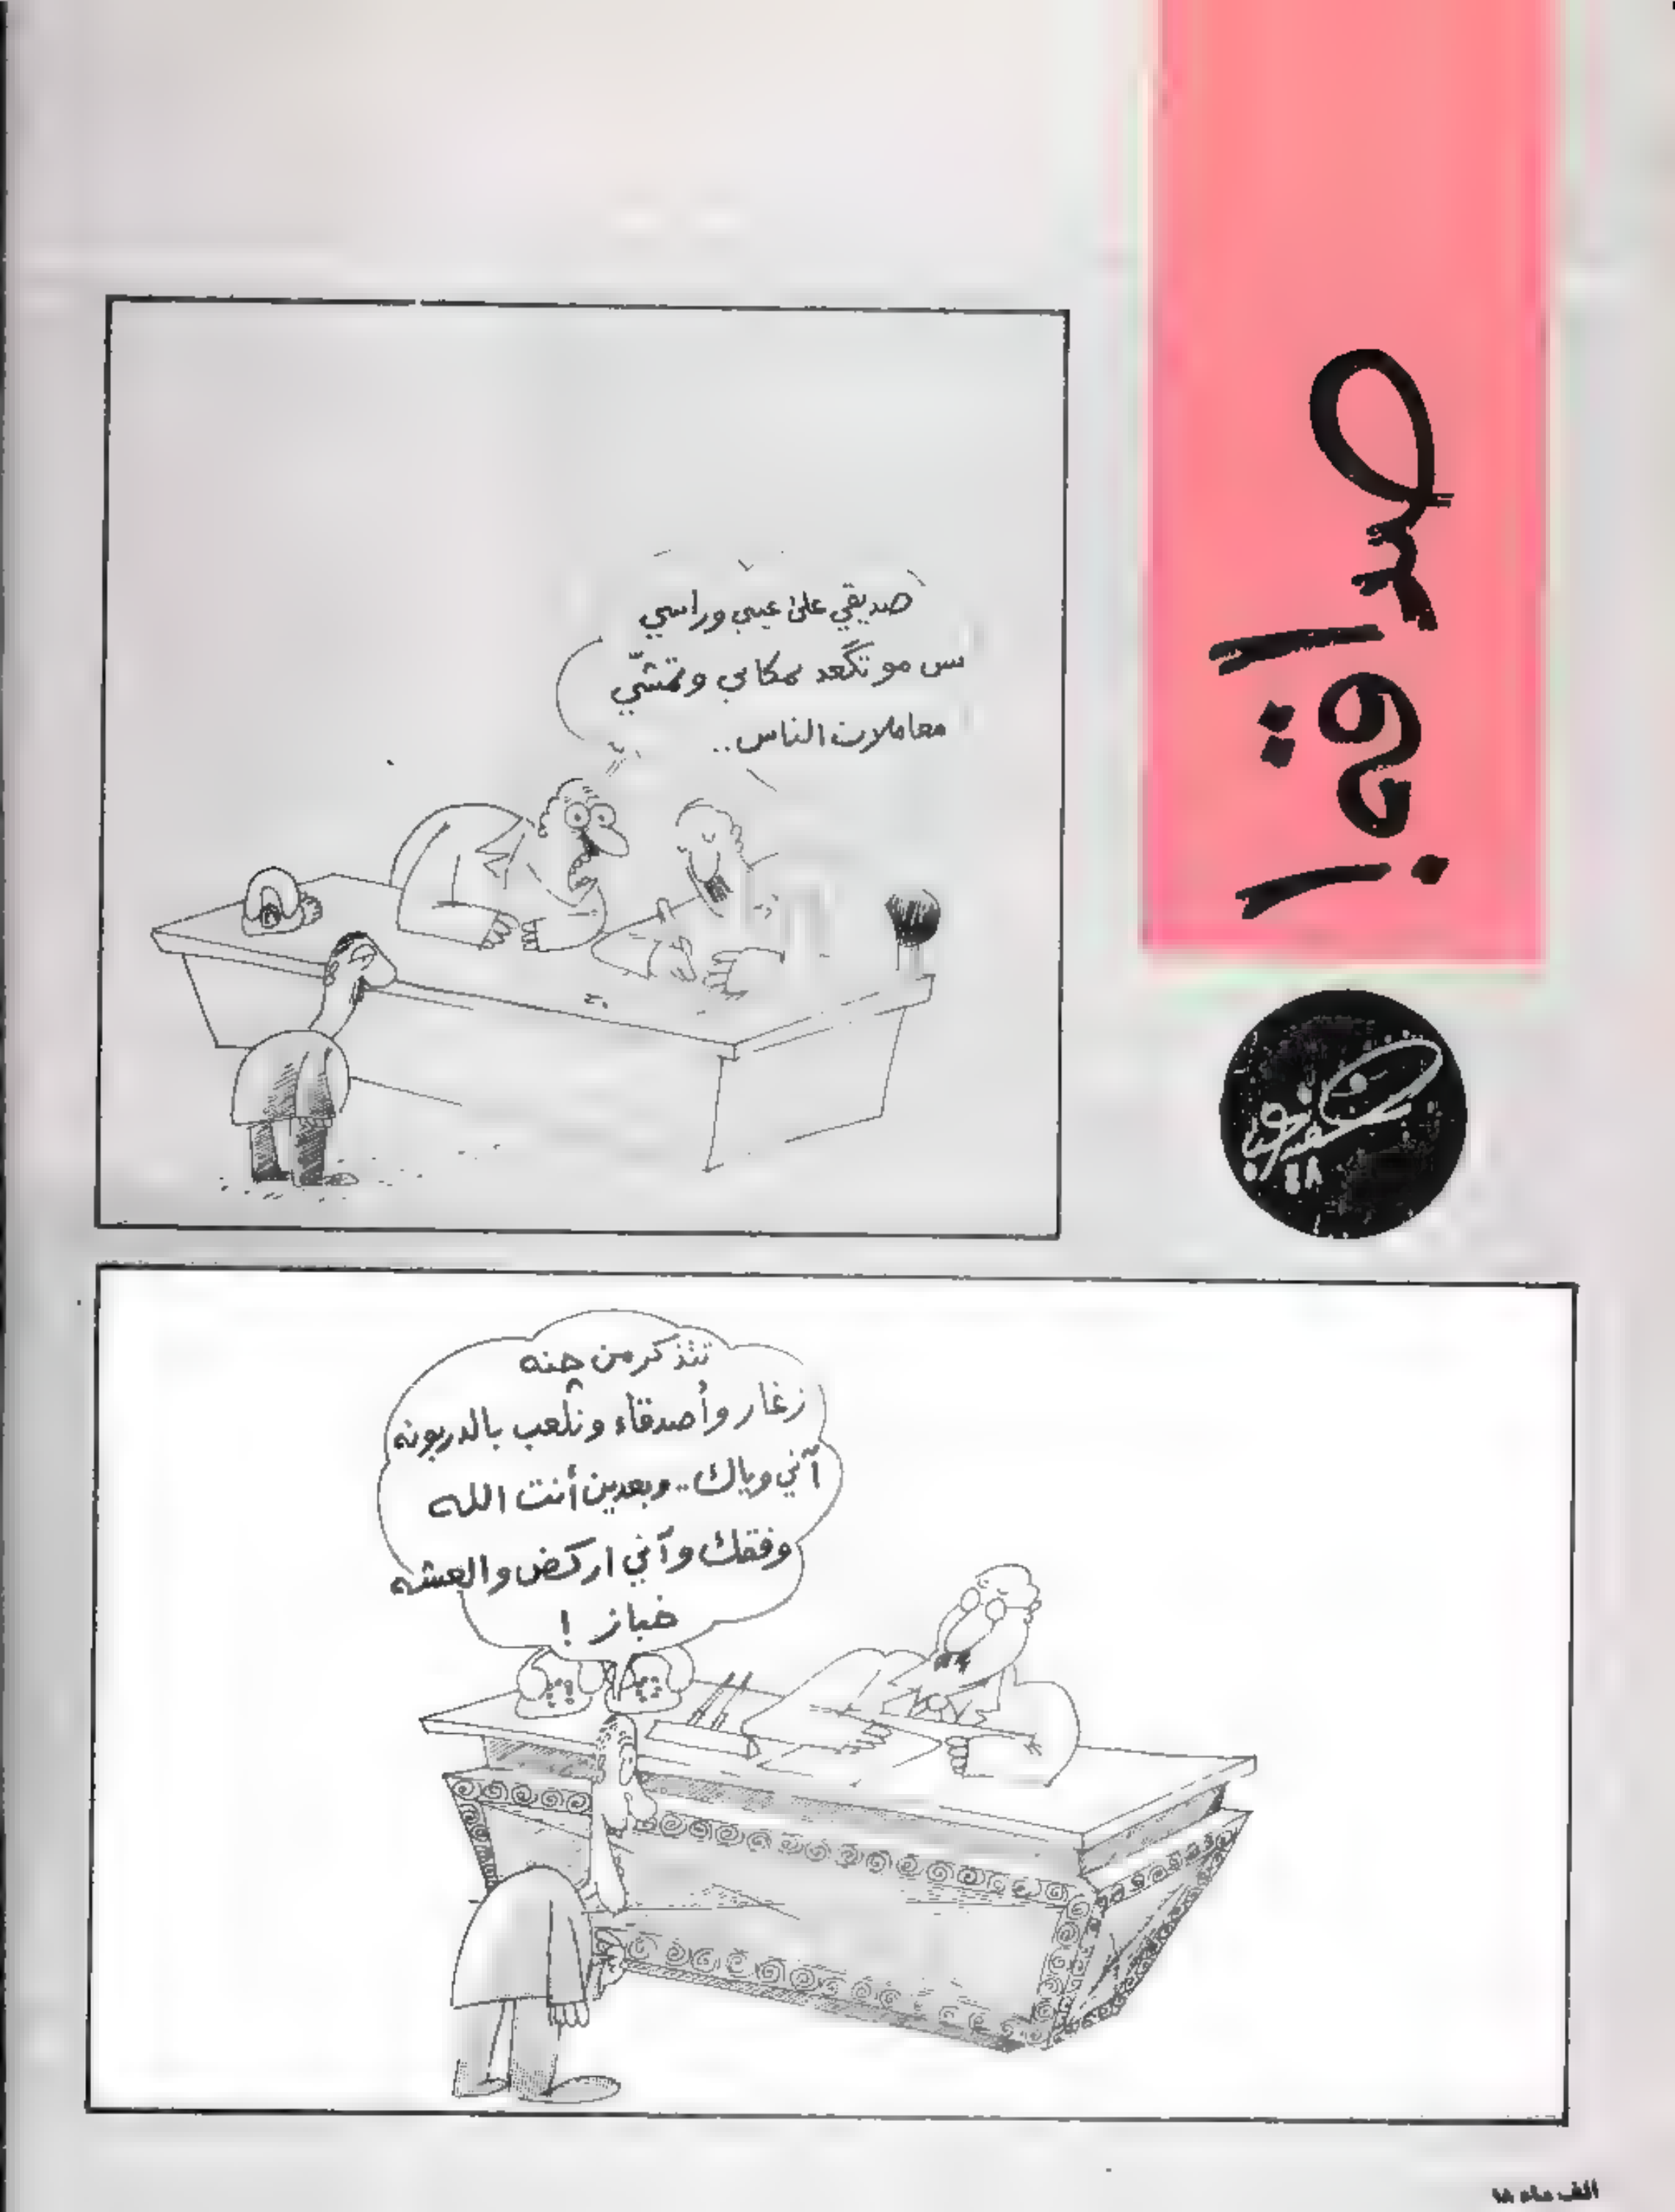 صداقة!
خضير
٨٨
صديقي على عيني وراسي
بس مو تگعد بمكاني وتمشّي
معاملات الناس..
تتذكر من چنه
زغار وأصدقاء ونلعب بالدربونه
آني وياك.. وبعدين أنت الله
وفقك وآني اركض والعشه
خباز !
الف باء ١٨